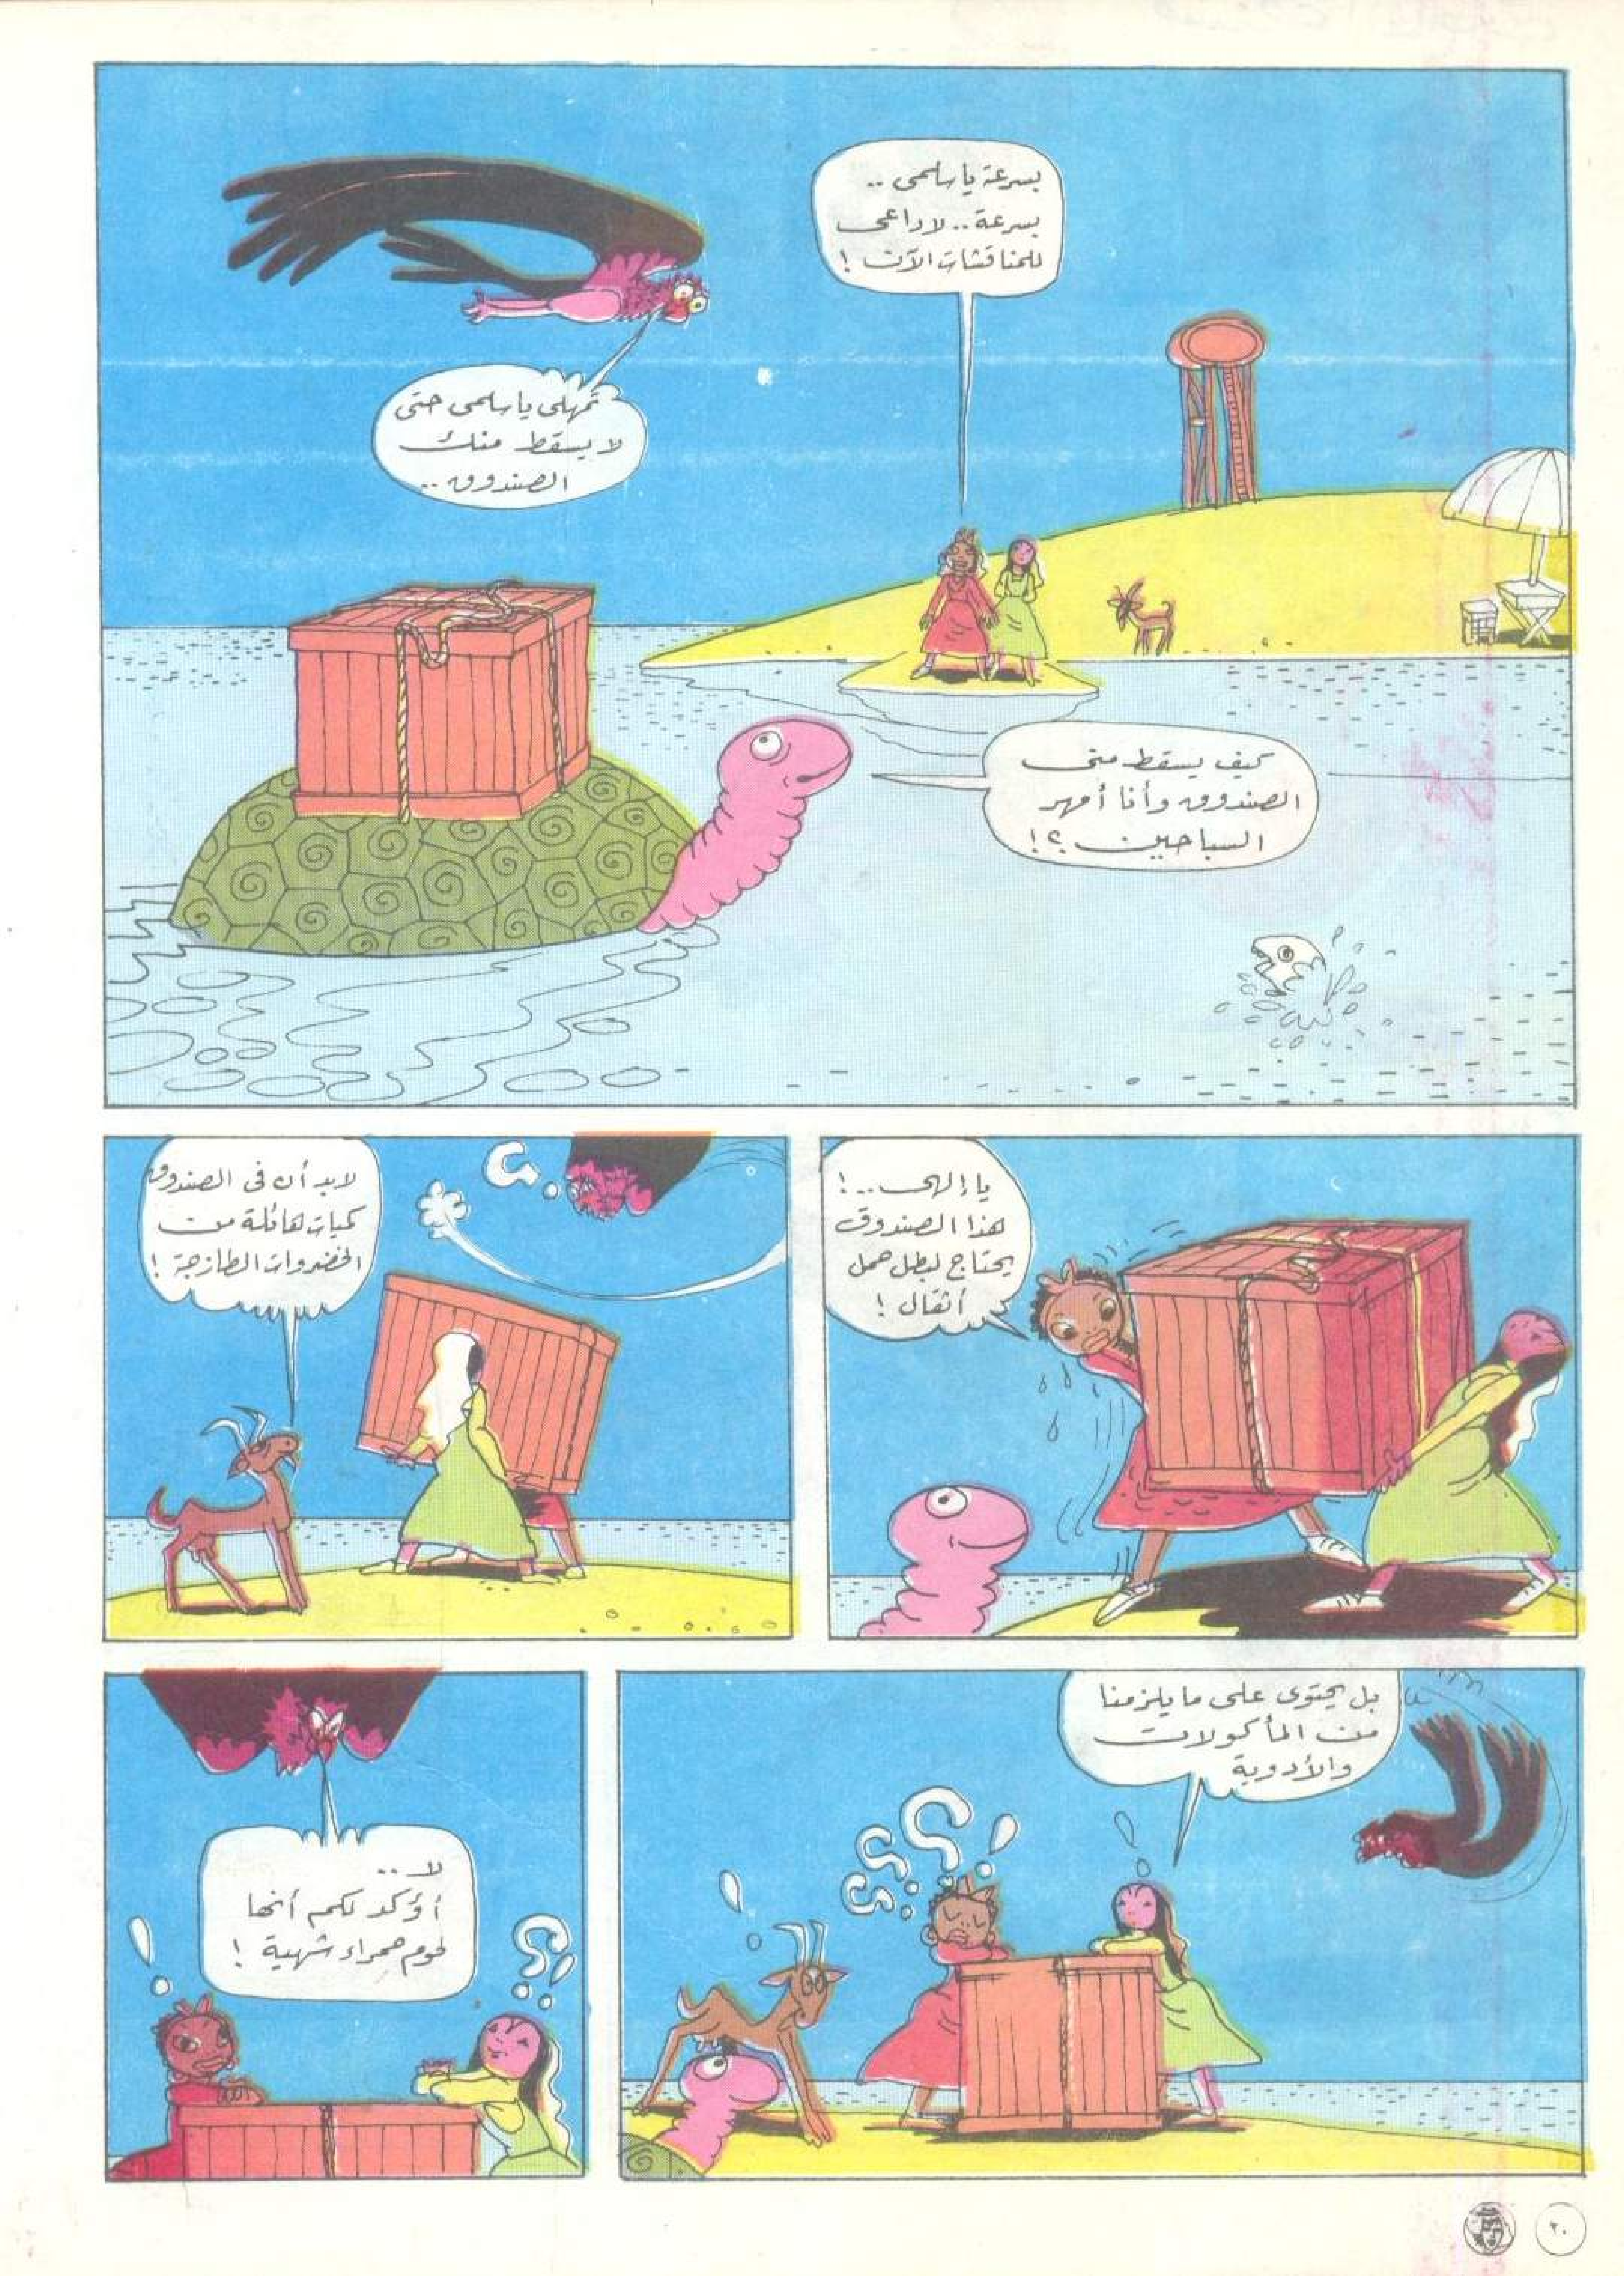 بسرعة يا سلمى ..
بسرعة .. لا داعى
للمناقشات الآن !
تمهلى يا سلمى حتى
لا يسقط منك
الصندوق ..
كيف يسقط منى
الصندوق وأنا أمهر
السباحين ؟!
يا إلهى ..!
هذا الصندوق
يحتاج لبطل حمل
أثقال !
لابد أن فى الصندوق
كميات هائلة من
الخضروات الطازجة !
بل يحتوى على ما يلزمنا
من المأكولات
والأدوية
لا ..
أؤكد لكم أنها
لحوم حمراء شهية !
٢٠